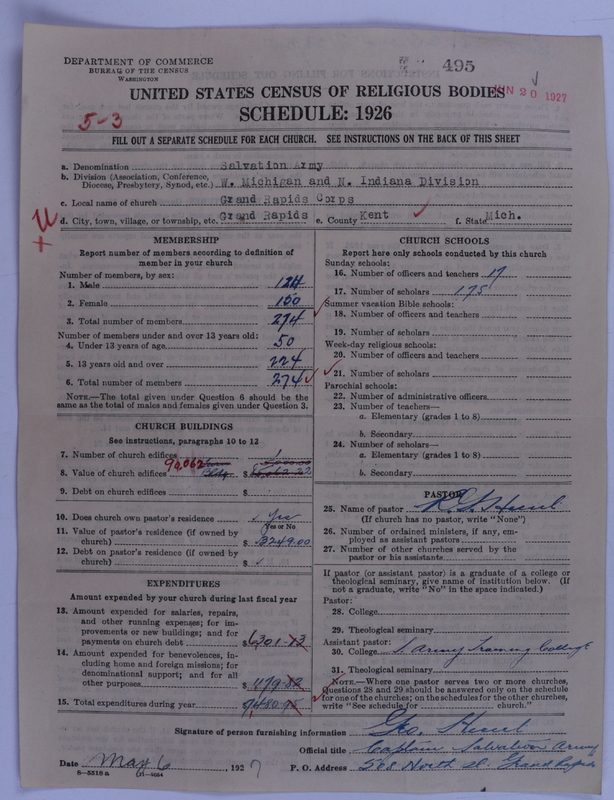 DEPARTMENT OF COMMERCE
BUREAU OF THE CENSUS
WASHINGTON
495
UNITED STATES CENSUS OF RELIGIOUS BODIES
JUN 20 1927
SCHEDULE: 1926
5-3
FILL OUT A SEPARATE SCHEDULE FOR EACH CHURCH. SEE INSTRUCTIONS ON THE BACK OF THIS SHEET
a. Denomination Salvation Army
b. Division (Association, Conference, Diocese, Presbytery, Synod, etc.) W. Michigan and N. Indiana Division
c. Local name of church Grand Rapids Corps
d. City, town, village, or township, etc. Grand Rapids e. County Kent f. State Mich.
MEMBERSHIP
Report number of members according to definition of
member in your church
Number of members, by sex:
1. Male 124
2. Female 150
3. Total number of members 274
Number of members under and over 13 years old:
4. Under 13 years of age 50
5. 13 years old and over 224
6. Total number of members 274
NOTE.—The total given under Question 6 should be
same as the total of males and females given under Question 3.
CHURCH BUILDINGS
See instructions, paragraphs 10 to 12
7. Number of church edifices
8. Value of church edifices 92,062 $
9. Debt on church edifices $
10. Does church own pastor's residence Yes
Yes or No
11. Value of pastor's residence (if owned by
church) $ 3249.00
12. Debt on pastor's residence (if owned by
church) $
EXPENDITURES
Amount expended by your church during last fiscal year
13. Amount expended for salaries, repairs,
and other running expenses; for im-
provements or new buildings; and for
payments on church debt $ 6301.13
14. Amount expended for benevolences, in-
cluding home and foreign missions; for
denominational support; and for all
other purposes $ 1179.82
15. Total expenditures during year $ 7480.95
CHURCH SCHOOLS
Report here only schools conducted by this church
Sunday schools:
16. Number of officers and teachers 17
17. Number of scholars 175
Summer vacation Bible schools:
18. Number of officers and teachers
19. Number of scholars
Week-day religious schools:
20. Number of officers and teachers
21. Number of scholars
Parochial schools:
22. Number of administrative officers
23. Number of teachers—
a. Elementary (grades 1 to 8)
b. Secondary
24. Number of scholars—
a. Elementary (grades 1 to 8)
b. Secondary
PASTOR
25. Name of pastor
(If church has no pastor, write "None")
26. Number of ordained ministers, if any, em-
ployed as assistant pastors
27. Number of other churches served by the
pastor or his assistants
If pastor (or assistant pastor) is a graduate of a college or
theological seminary, give name of institution below. (If
not a graduate, write "No" in the space indicated.)
Pastor:
28. College
29. Theological seminary
Assistant pastor:
30. College S. Army Training College
31. Theological seminary
NOTE.—Where one pastor serves two or more churches,
Questions 28 and 29 should be answered only on the schedule
for one of the churches; on the schedules for the other churches,
write "See schedule for church."
Signature of person furnishing information Geo.
Official title Captain Salvation Army
Date May 6 1927 P. O. Address North St. Grand Rapids
8-5518a